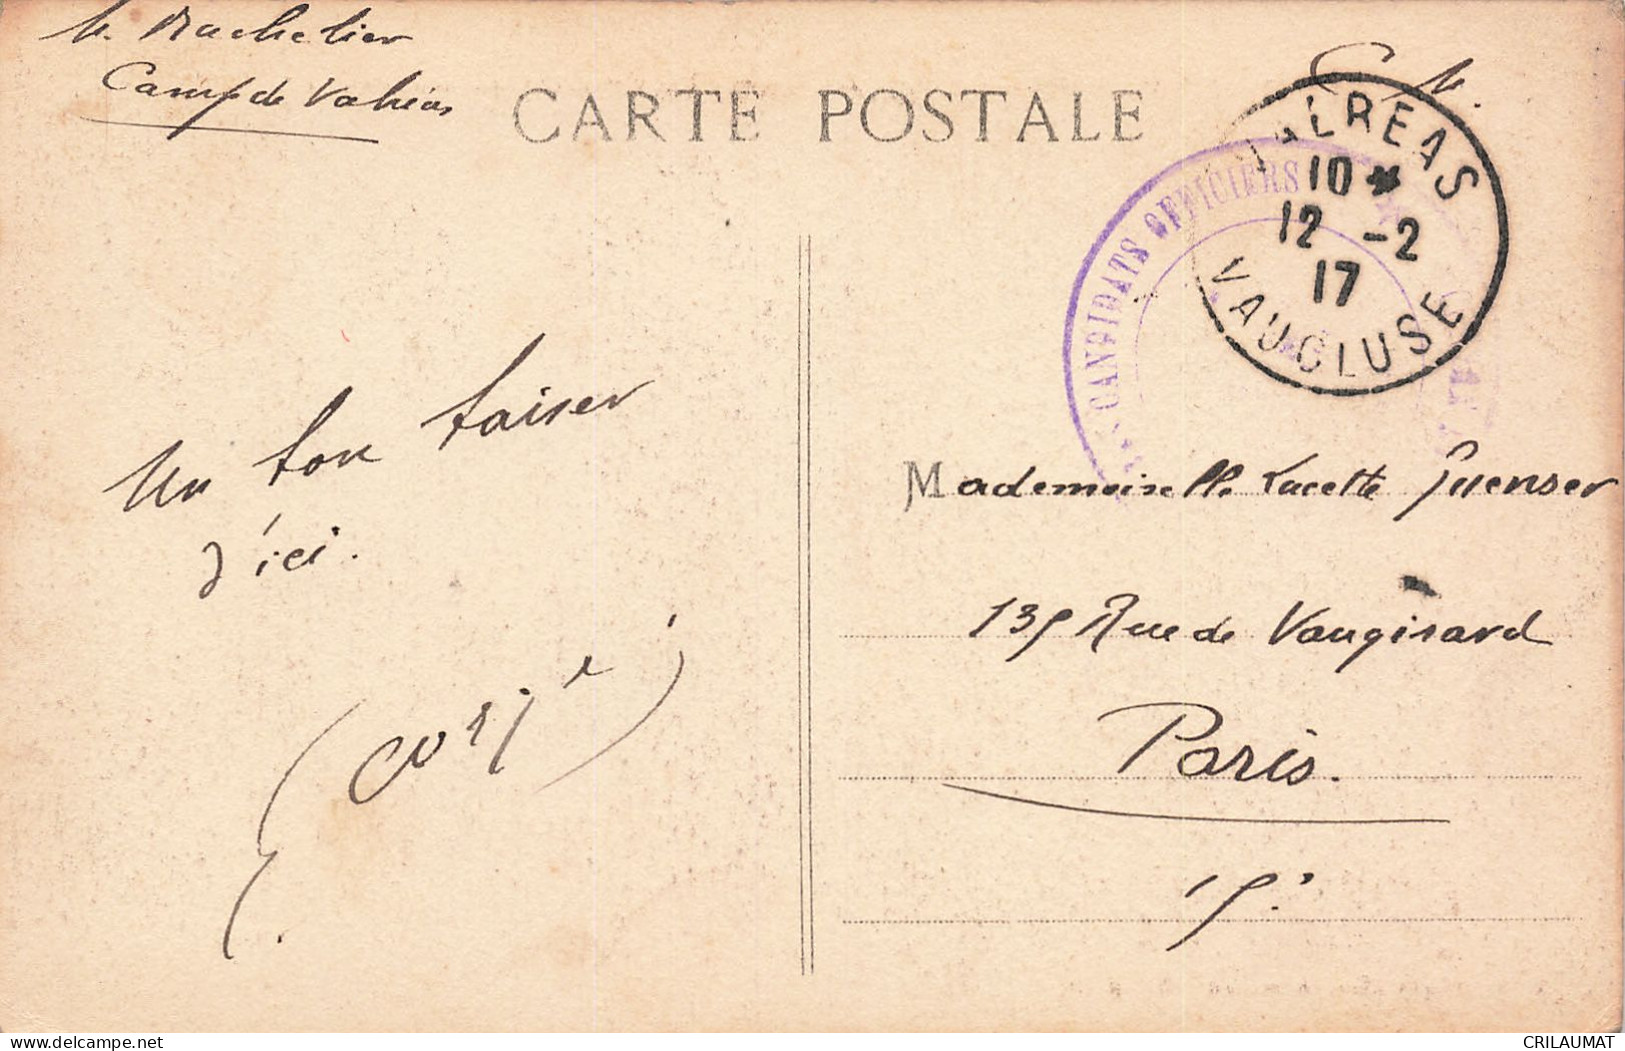 Camp de Valréas
CARTE POSTALE
VALREAS
10 *
12 -2
17
VAUCLUSE
CANDIDATS OFFICIERS
Un bon baiser
d'ici.
Mademoiselle Lucette
135 Rue de Vaugirard
Paris.
15.
www.delcampe.net
CRILAUMAT